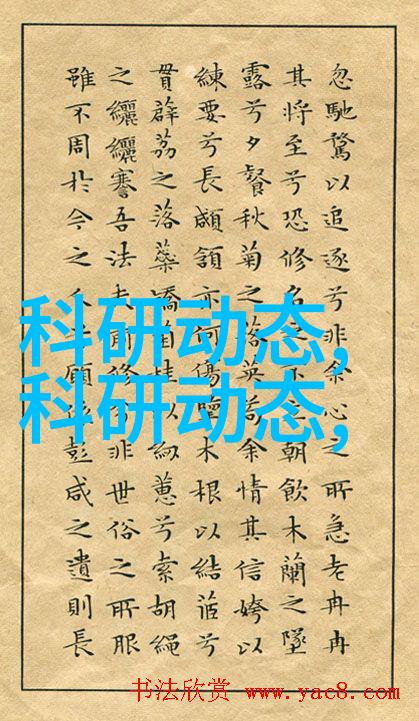 忽馳騖以追逐兮非余心之所急老冉冉
其將至兮恐修名之不立朝飲木蘭之墜
露兮夕餐秋菊之落英苟余情其信姱以
練要兮長顑頷亦何傷擥木根以結茝兮
貫薜荔之落蘂矯菌桂以紉蕙兮索胡繩
之纚纚謇吾法夫前修兮非世俗之所服
雖不周於今之人兮願依彭咸之遺則長
科研动态,
科研动态,
书法欣赏 www.yac8.com